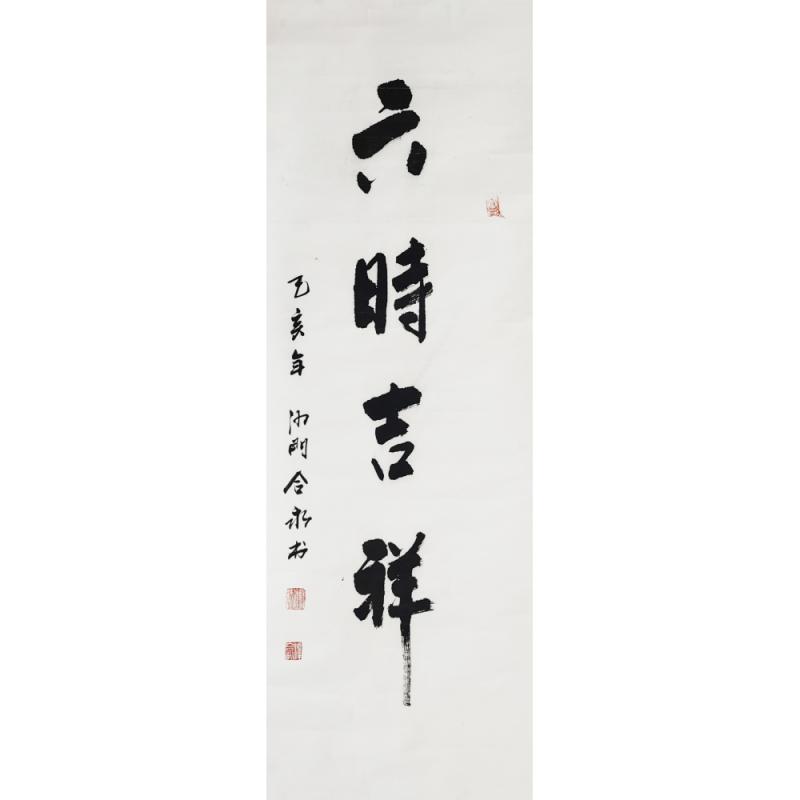 六時吉祥
乙亥年 沙門合永书